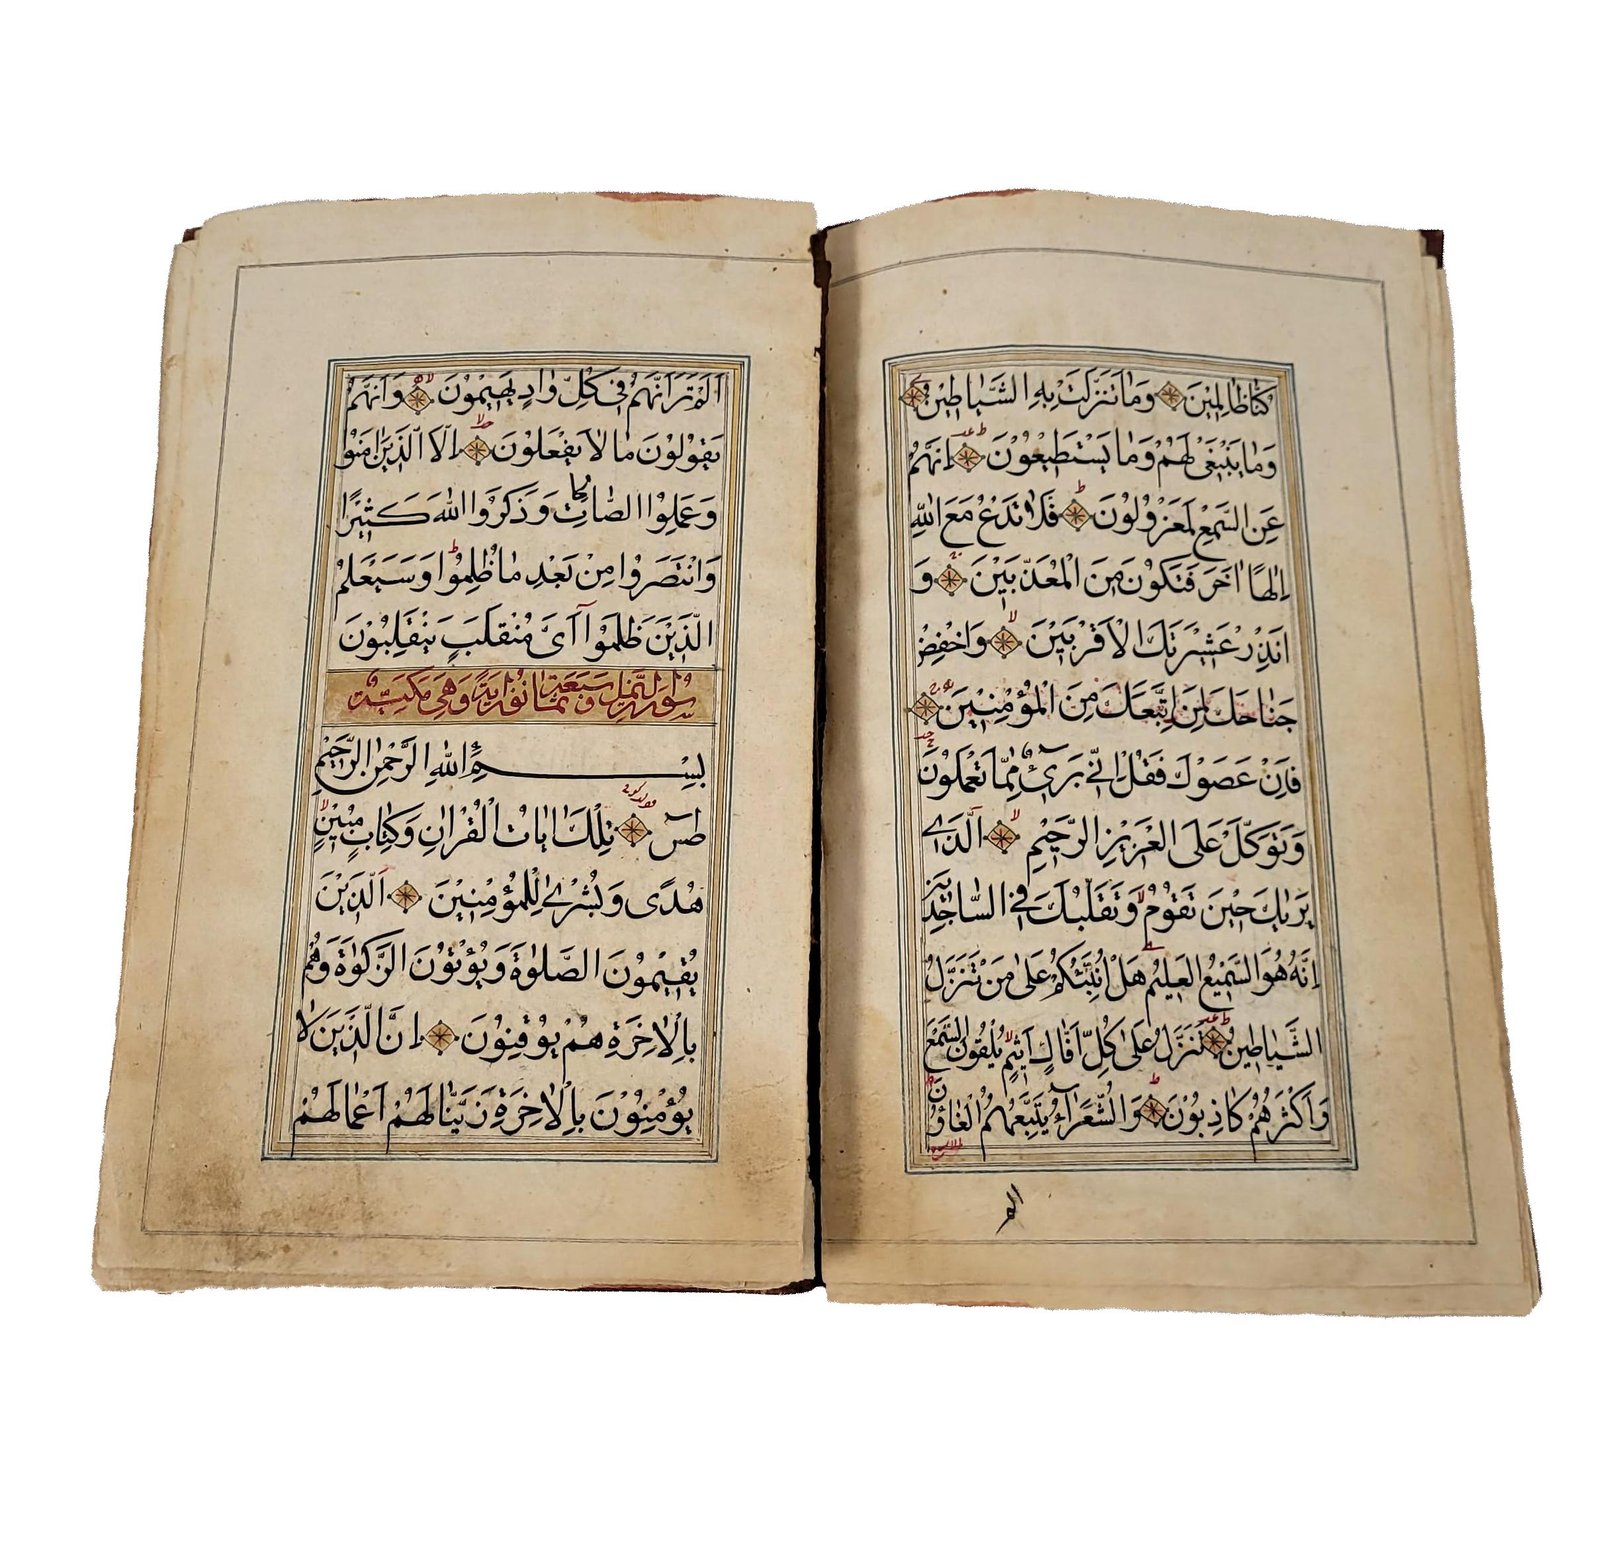 كُنَّا ظَالِمِينَ وَمَا تَنَزَّلَتْ بِهِ الشَّيَاطِينُ
وَمَا يَنْبَغِي لَهُمْ وَمَا يَسْتَطِيعُونَ اِنَّهُمْ
عَنِ السَّمْعِ لَمَعْزُولُونَ فَلَا تَدْعُ مَعَ اللهِ
اِلٰهًا اٰخَرَ فَتَكُونَ مِنَ الْمُعَذَّبِينَ وَ
اَنْذِرْ عَشِيرَتَكَ الْاَقْرَبِينَ وَاخْفِضْ
جَنَاحَكَ لِمَنِ اتَّبَعَكَ مِنَ الْمُؤْمِنِينَ
فَاِنْ عَصَوْكَ فَقُلْ اِنِّي بَرِيءٌ مِمَّا تَعْمَلُونَ
وَتَوَكَّلْ عَلَى الْعَزِيزِ الرَّحِيمِ الَّذِي
يَرٰيكَ حِينَ تَقُومُ وَتَقَلُّبَكَ فِي السَّاجِدِينَ
اِنَّهُ هُوَ السَّمِيعُ الْعَلِيمُ هَلْ اُنَبِّئُكُمْ عَلٰى مَنْ تَنَزَّلُ
الشَّيَاطِينُ تَنَزَّلُ عَلٰى كُلِّ اَفَّاكٍ اَثِيمٍ يُلْقُونَ السَّمْعَ
وَاَكْثَرُهُمْ كَاذِبُونَ وَالشُّعَرَاءُ يَتَّبِعُهُمُ الْغَاوُنَ
الم
اَلَمْ تَرَ اَنَّهُمْ فِي كُلِّ وَادٍ يَهِيمُونَ وَاَنَّهُمْ
يَقُولُونَ مَا لَا يَفْعَلُونَ اِلَّا الَّذِينَ اٰمَنُوا
وَعَمِلُوا الصَّالِحَاتِ وَذَكَرُوا اللهَ كَثِيرًا
وَانْتَصَرُوا مِنْ بَعْدِ مَا ظُلِمُوا وَسَيَعْلَمُ
الَّذِينَ ظَلَمُوا اَيَّ مُنْقَلَبٍ يَنْقَلِبُونَ
سُورَةُ النَّمْلِ سَبْعَةٌ وَثَمَانُونَ اٰيَةً وَهِيَ مَكِّيَّةٌ
بِسْمِ اللهِ الرَّحْمٰنِ الرَّحِيمِ
طٰسٓ تِلْكَ اٰيَاتُ الْقُرْاٰنِ وَكِتَابٍ مُبِينٍ
هُدًى وَبُشْرٰى لِلْمُؤْمِنِينَ اَلَّذِينَ
يُقِيمُونَ الصَّلٰوةَ وَيُؤْتُونَ الزَّكٰوةَ وَهُمْ
بِالْاٰخِرَةِ هُمْ يُوقِنُونَ اِنَّ الَّذِينَ لَا
يُؤْمِنُونَ بِالْاٰخِرَةِ زَيَّنَّا لَهُمْ اَعْمَالَهُمْ